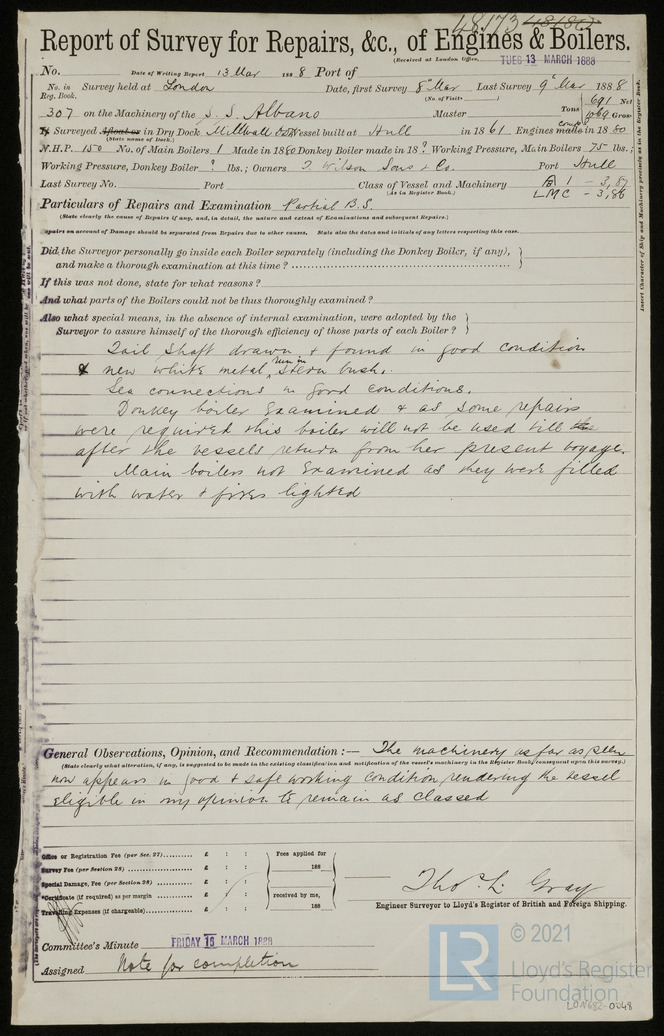 48173 48180
Report of Survey for Repairs, &c., of Engines & Boilers.
(Received at London Office, TUES 13 MARCH 1888
No. Date of Writing Report 13 Mar 1888 Port of
No. in Reg. Book. Survey held at London Date, first Survey 8th Mar Last Survey 9th Mar 1888
(No. of Visits )
307 on the Machinery of the S. S. Albano Master Tons 691 Net 1069 Gross
Surveyed Afloat or in Dry Dock Millwall Vessel built at Hull in 1861 Engines made in 1880
(State name of Dock.)
N.H.P. 150 No. of Main Boilers 1 Made in 1880 Donkey Boiler made in 18 ? Working Pressure, Main Boilers 75 lbs.;
Working Pressure, Donkey Boiler ? lbs.; Owners T. Wilson Sons & Co. Port Hull
Last Survey No. Port Class of Vessel and Machinery A 1 - 3,87
(As in Register Book.) LMC - 3,86
Particulars of Repairs and Examination Partial B.S.
(State clearly the cause of Repairs if any, and, in detail, the nature and extent of Examinations and subsequent Repairs.)
epairs on account of Damage should be separated from Repairs due to other causes. State also the dates and initials of any letters respecting this case.
Did the Surveyor personally go inside each Boiler separately (including the Donkey Boiler, if any),
and make a thorough examination at this time ?
If this was not done, state for what reasons ?
And what parts of the Boilers could not be thus thoroughly examined ?
Also what special means, in the absence of internal examination, were adopted by the
Surveyor to assure himself of the thorough efficiency of those parts of each Boiler ?
Tail shaft drawn & found in good condition
& new white metal run in stern bush.
Sea connections in good conditions.
Donkey boiler Examined & as some repairs
were required this boiler will not be used till the
after the vessels return from her present voyage.
Main boilers not Examined as they were filled
with water & fires lighted
General Observations, Opinion, and Recommendation :— The machinery as far as seen
(State clearly what alteration, if any, is suggested to be made in the existing classification and notification of the vessel's machinery in the Register Book, consequent upon this survey.)
now appears in good & safe working condition rendering the vessel
eligible in my opinion to remain as classed
Office or Registration Fee (per Sec. 27) £ : :
Survey Fee (per Section 28) £ : :
Special Damage, Fee (per Section 28) £ : :
*Certificate (if required) as per margin £ : :
Travelling Expenses (if chargeable) £ : :
Fees applied for
188
received by me,
188
Thos. L. Gray
Engineer Surveyor to Lloyd's Register of British and Foreign Shipping.
Committee's Minute FRIDAY 16 MARCH 1888
Assigned Note for completion
Insert Character of Ship and Machinery precisely as in the Register Book.
LR
© 2021
Lloyd's Register
Foundation
LON682-0048